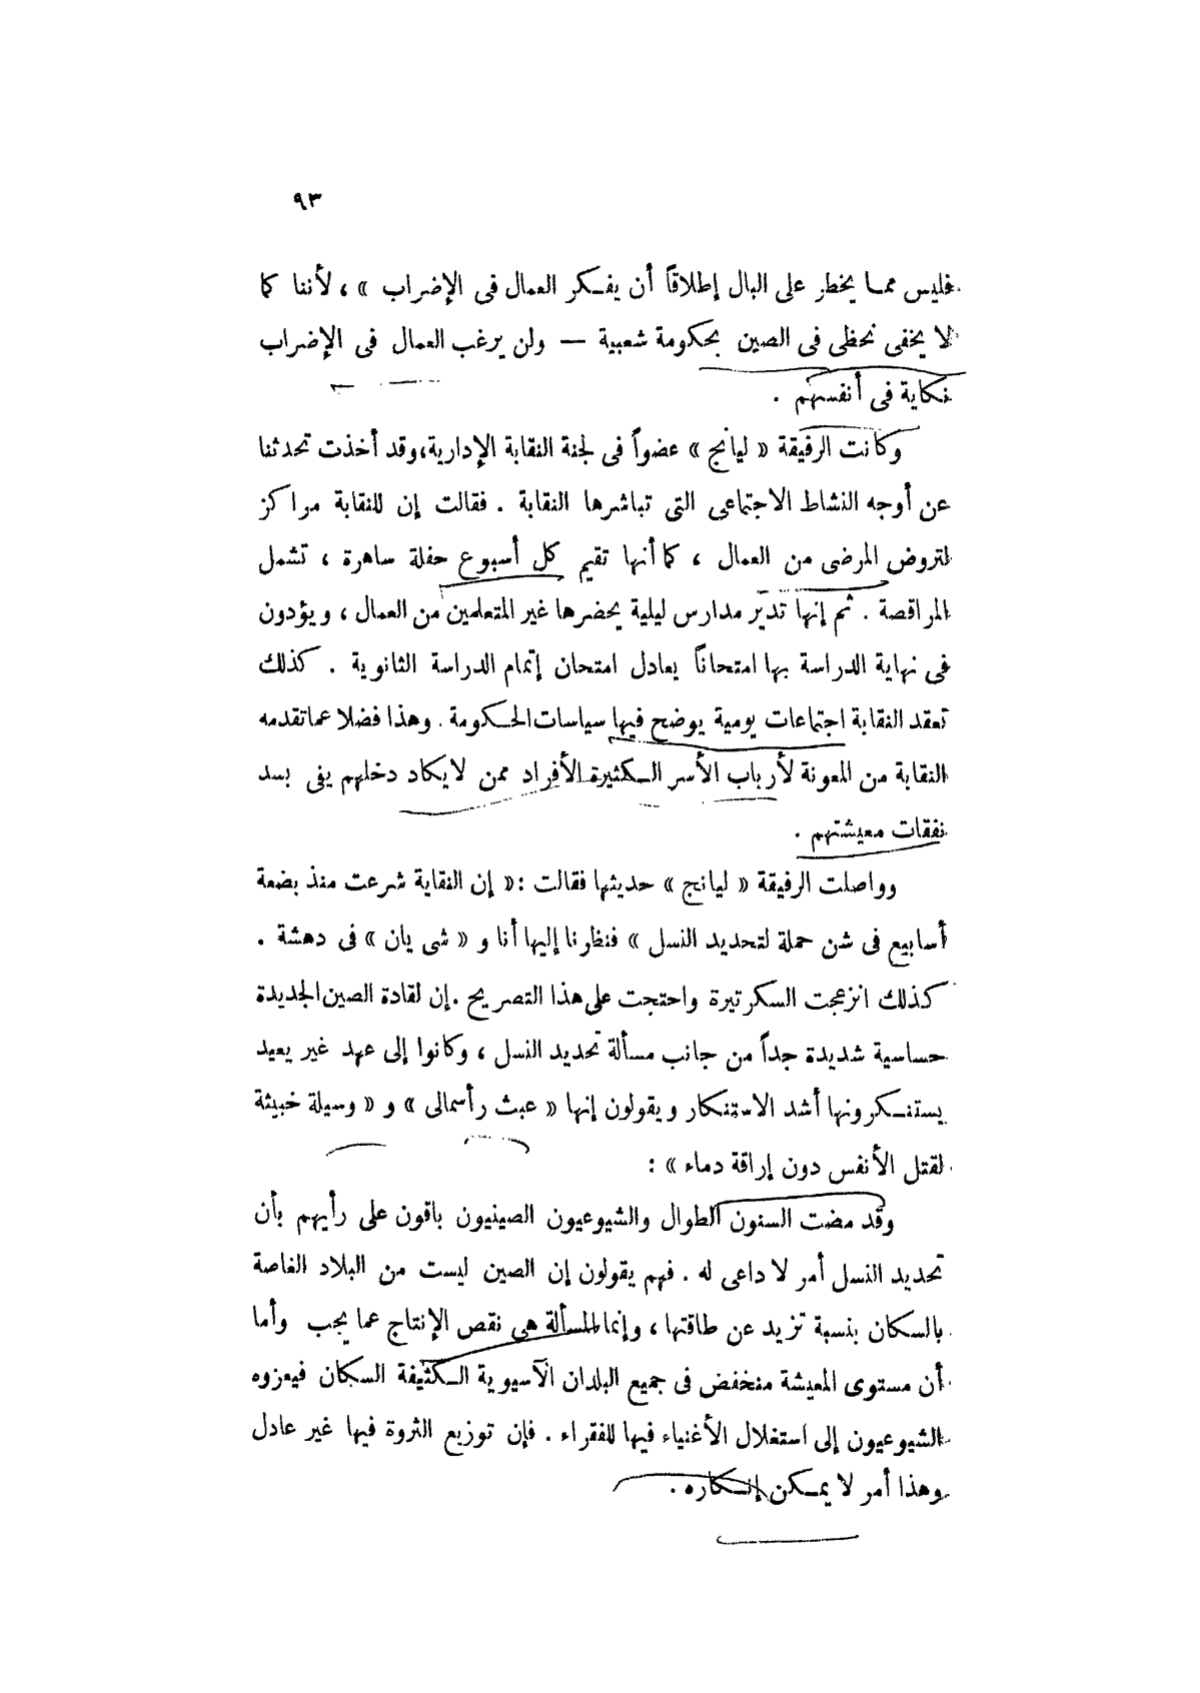 ٩٣
فليس مما يخطر على البال إطلاقاً أن يفكر العمال فى الإضراب » ، لأننا كما
لا يخفى نحظى فى الصين بحكومة شعبية — ولن يرغب العمال فى الإضراب
نكاية فى أنفسهم .
وكانت الرفيقة « ليانج » عضواً فى لجنة النقابة الإدارية، وقد أخذت تحدثنا
عن أوجه النشاط الاجتماعى التى تباشرها النقابة . فقالت إن للنقابة مراكز
لتروض المرضى من العمال ، كما أنها تقيم كل أسبوع حفلة ساهرة ، تشمل
المراقصة . ثم إنها تدبّر مدارس ليلية يحضرها غير المتعلمين من العمال ، ويؤدون
فى نهاية الدراسة بها امتحاناً يعادل امتحان إتمام الدراسة الثانوية . كذلك
تعقد النقابة اجتماعات يومية يوضح فيها سياسات الحكومة . وهذا فضلا عما تقدمه
النقابة من المعونة لأرباب الأسر الكثيرة الأفراد ممن لا يكاد دخلهم يفى بسد
نفقات معيشتهم .
وواصلت الرفيقة « ليانج » حديثها فقالت : « إن النقاية شرعت منذ بضعة
أسابيع فى شن حملة لتحديد النسل » فنظرنا إليها أنا و « شى يان » فى دهشة .
كذلك انزعجت السكرتيرة واحتجت على هذا التصريح . إن لقادة الصين الجديدة
حساسية شديدة جداً من جانب مسألة تحديد النسل ، وكانوا إلى عهد غير يعيد
يستنكرونها أشد الاستنكار ويقولون إنها « عبث رأسمالى » و « وسيلة خبيثة
لقتل الأنفس دون إراقة دماء » :
وقد مضت السنون الطوال والشيوعيون الصينيون باقون على رأيهم بأن
تحديد النسل أمر لا داعى له . فهم يقولون إن الصين ليست من البلاد الغاصة
بالسكان بنسبة تزيد عن طاقتها ، وإنما المسألة هى نقص الإنتاج عما يجب وأما
أن مستوى المعيشة منخفض فى جميع البلدان الآسيوية الكثيفة السكان فيعزوه
الشيوعيون إلى استغلال الأغنياء فيها للفقراء . فإن توزيع الثروة فيها غير عادل
وهذا أمر لا يمكن إنكاره .